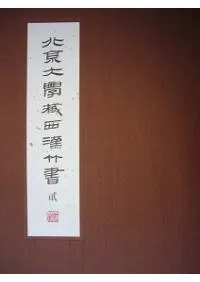 北京大學藏西漢竹書
貳